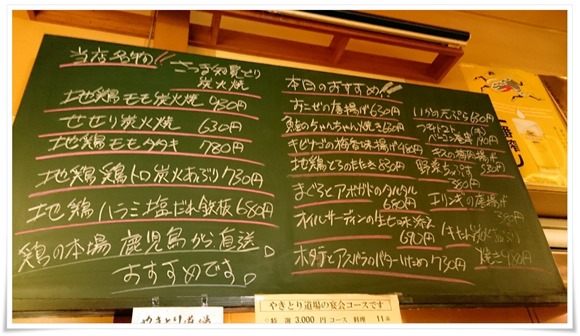 当店名物!!
さつま知覧どり
炭火焼
地鶏モモ炭火焼 950円
せせり炭火焼 630円
地鶏モモタタキ 780円
地鶏 鶏トロ炭火あぶり 730円
地鶏 ハラミ塩だれ鉄板 680円
鶏の本場 鹿児島から直送。
おすすめです。
本日のおすすめ!!
おこぜの唐揚げ 630円
鮭のちゃんちゃん焼き 630円
キビナゴの梅香味揚げ 480円
地鶏とろたたき 830円
まぐろとアボガドのタルタル
680円
オイルサーディンの生七味添え
690円
ホタテとアスパラのバターいため 730円
いかの天ぷら 630円
プチトマト
ベーコン巻串
キスの梅肉揚げ
野菜ちぢみ
580円
エリンギの唐揚げ
380円
やきとり道場
やきとり道場の宴会コースです
特選 3,000円 コース 料理 11品